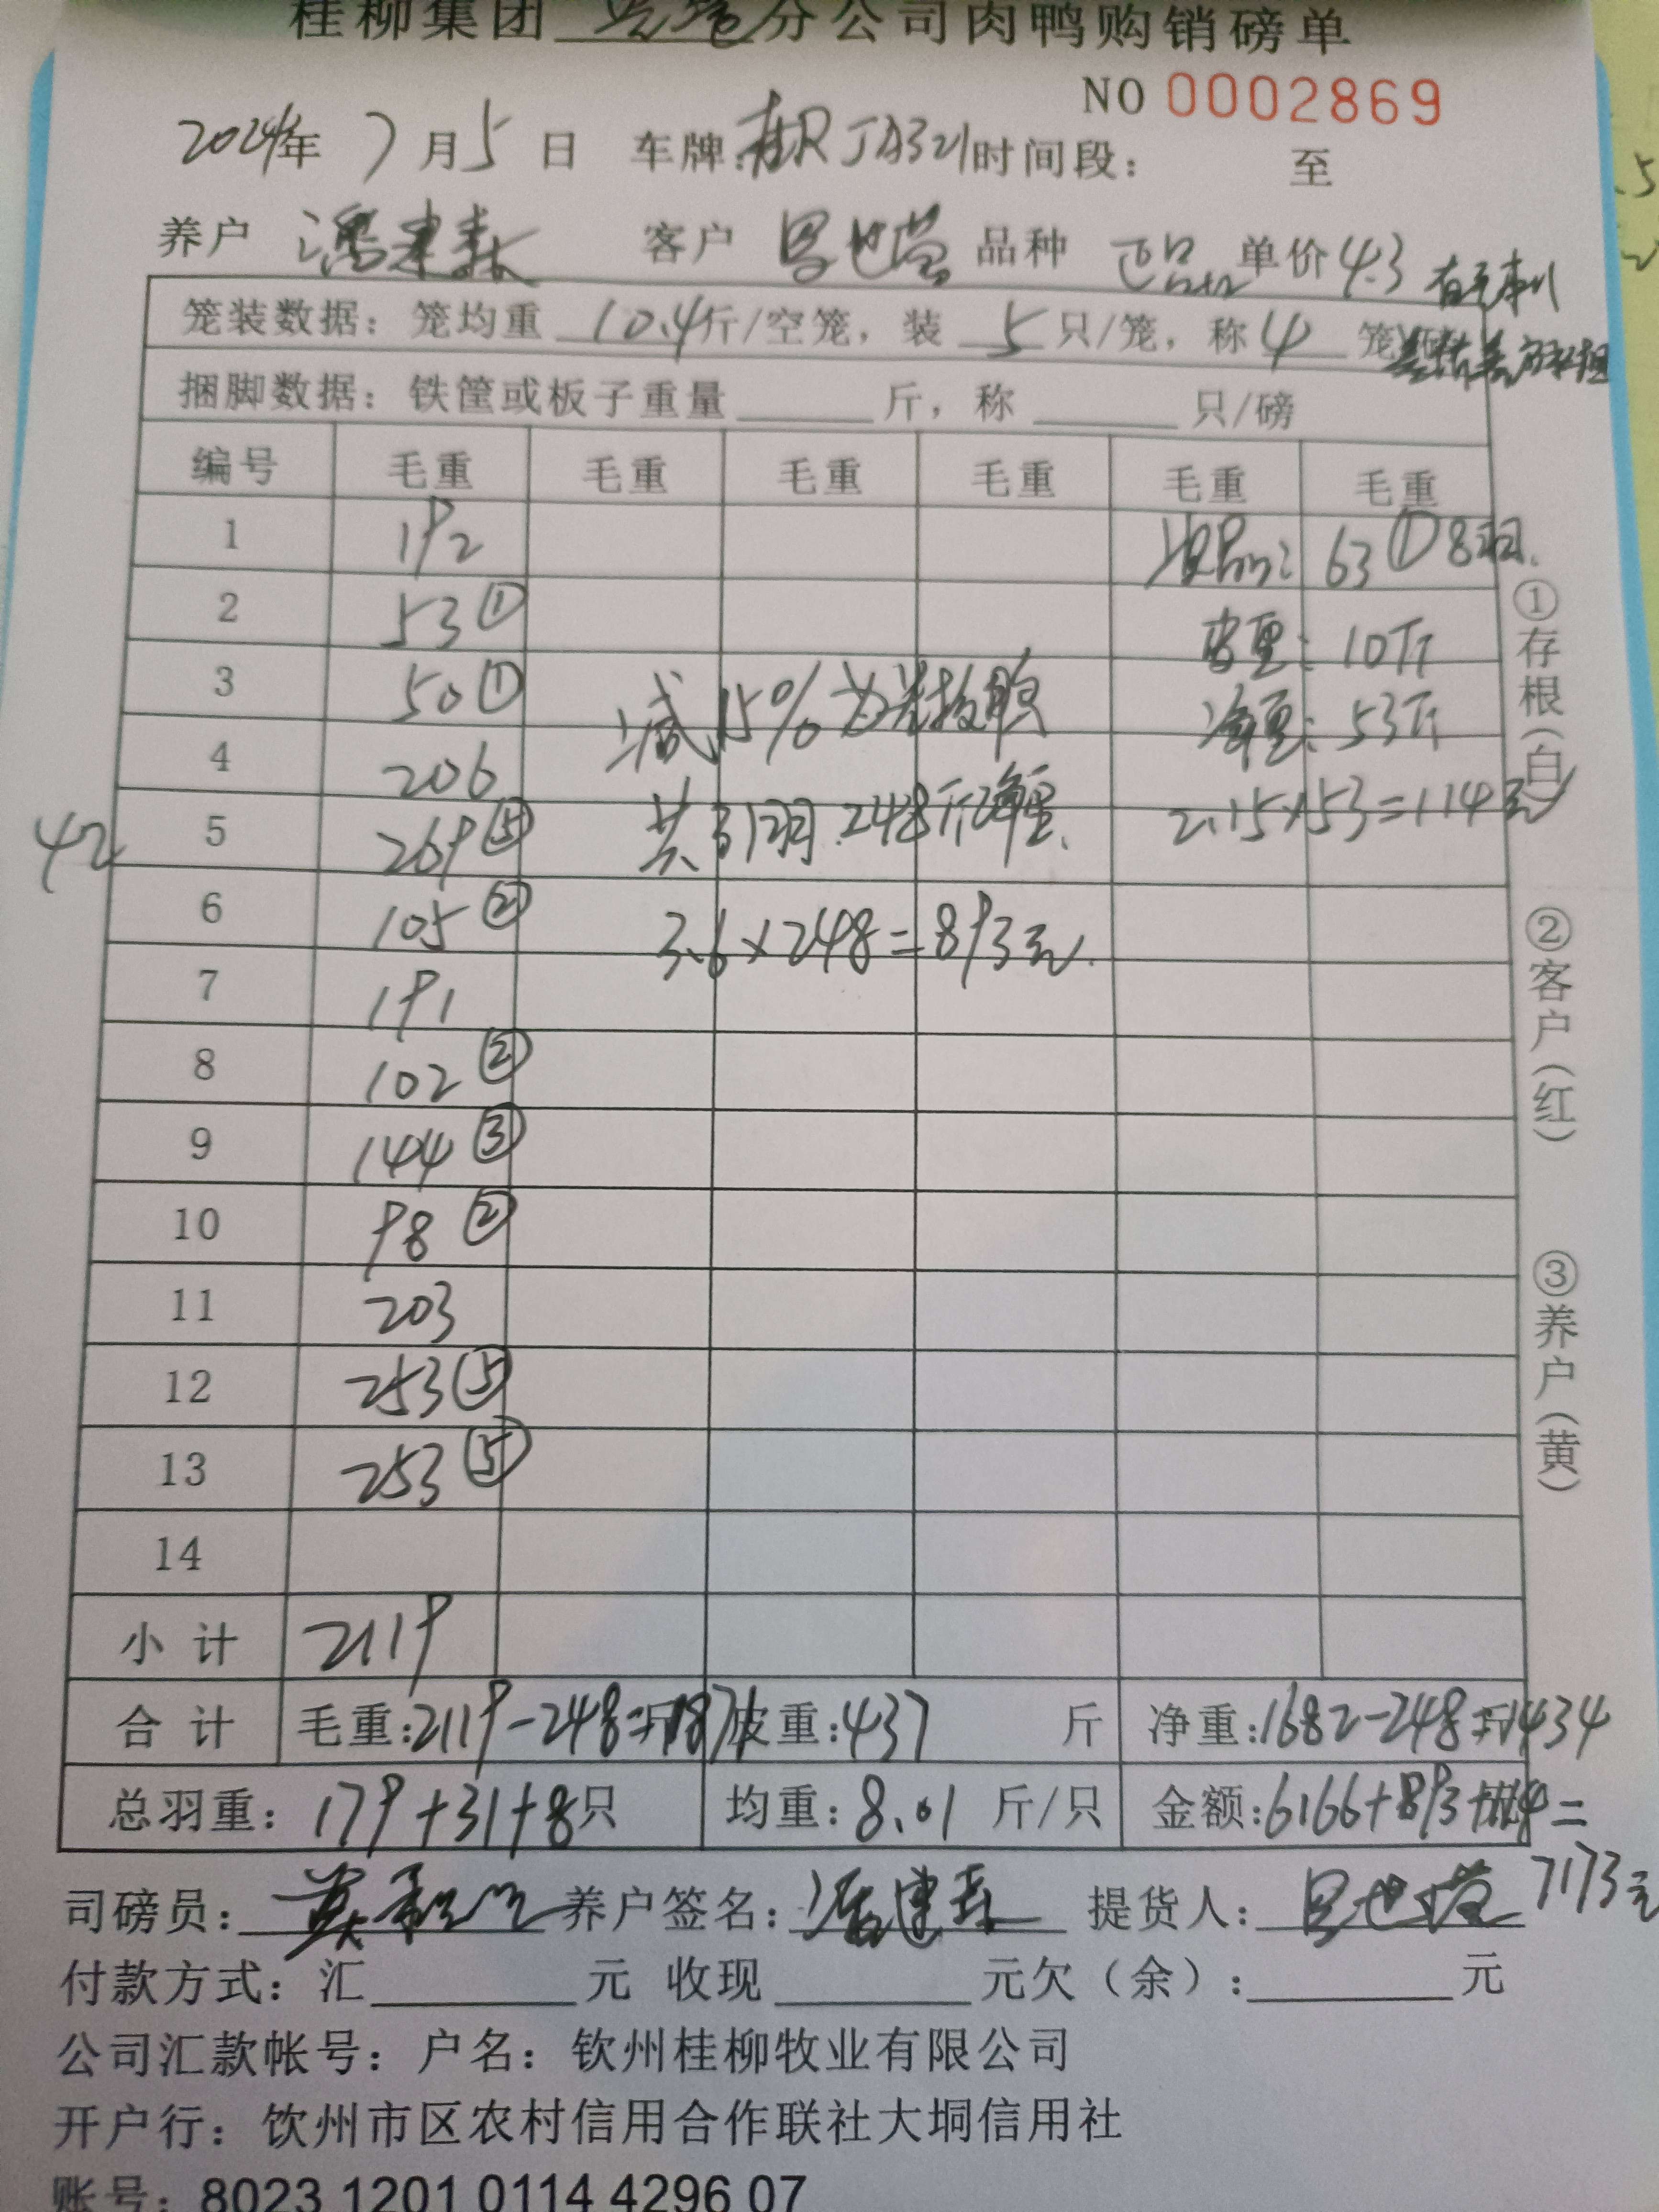 桂柳集团 分公司肉鸭购销磅单
NO 0002869
2024年 7月5日 车牌:桂R JA321 时间段: 至
养户 潘建森 客户 吕世营 品种 正品 单价 4.3
笼装数据: 笼均重 10.4 斤/空笼, 装 5 只/笼, 称 4 笼
捆脚数据: 铁筐或板子重量 斤, 称 只/磅
编号 毛重 毛重 毛重 毛重 毛重 毛重
1 192 63 ① 8羽.
2 53 ① 皮重: 10斤
3 50 ① 减 15% 为 净重: 53斤
4 206 2.15×53=114元
42 5 269 ⑤ 共31羽 248斤净重.
6 105 ② 3.6×248=893元.
7 191
8 102 ②
9 144 ③
10 98 ②
11 203
12 253 ⑤
13 253 ⑤
14
小计 2119
合计 毛重:2119-248=1871 斤 皮重:437 斤 净重:1682-248=1434
总羽重: 179+31+8只 均重: 8.01 斤/只 金额:6166+893+114=
7173元
司磅员: 养户签名: 潘建森 提货人: 吕世营
付款方式: 汇 元 收现 元欠(余): 元
公司汇款帐号: 户名: 钦州桂柳牧业有限公司
开户行: 饮州市区农村信用合作联社大垌信用社
账号: 8023 1201 0114 4296 07
①存根(白)
②客户(红)
③养户(黄)